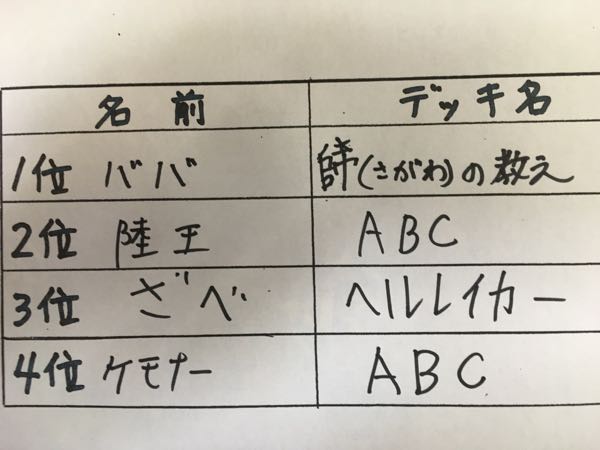 名前 デッキ名
1位 ババ 師(さがわ)の教え
2位 陸王 ABC
3位 ざべ ヘルレイカー
4位 ケモナー ABC